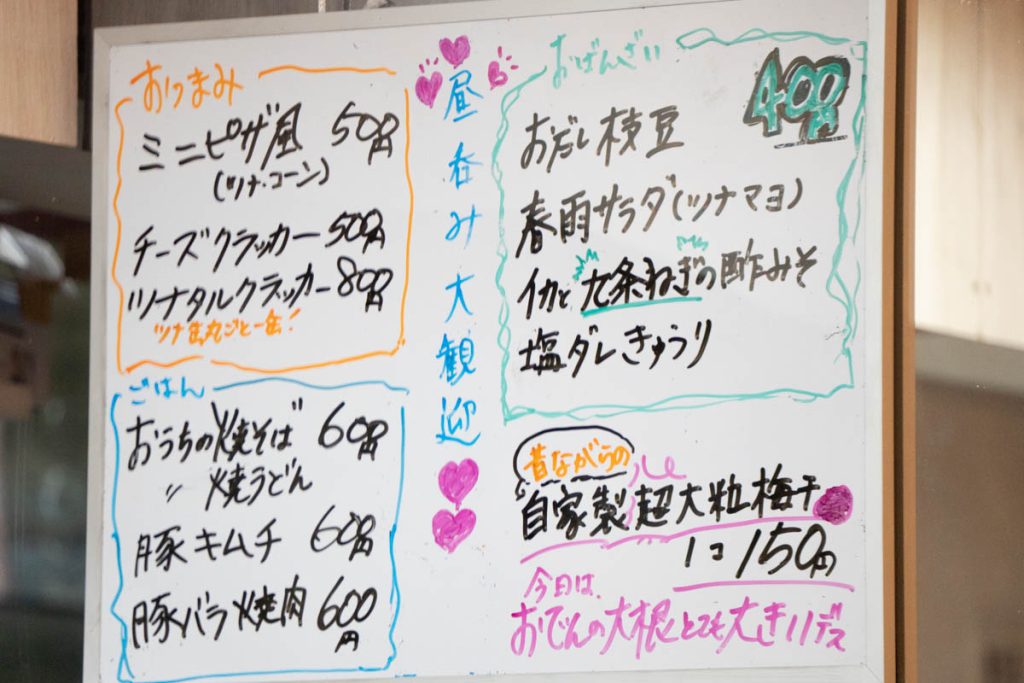 おつまみ
ミニピザ風 500円
(ツナ・コーン)
チーズクラッカー 500円
ツナタルクラッカー 800円
ツナ缶丸ごと一缶!
ごはん
おうちの焼そば 600円
〃 焼うどん
豚キムチ 600円
豚バラ焼肉 600円
昼呑み大観迎
おばんざい
400円
おだし枝豆
春雨サラダ(ツナマヨ)
イカと九条ねぎの酢みそ
塩ダレきゅうり
昔ながらの
自家製超大粒梅干
1コ 150円
今日は、
おでんの大根とても大きいデス